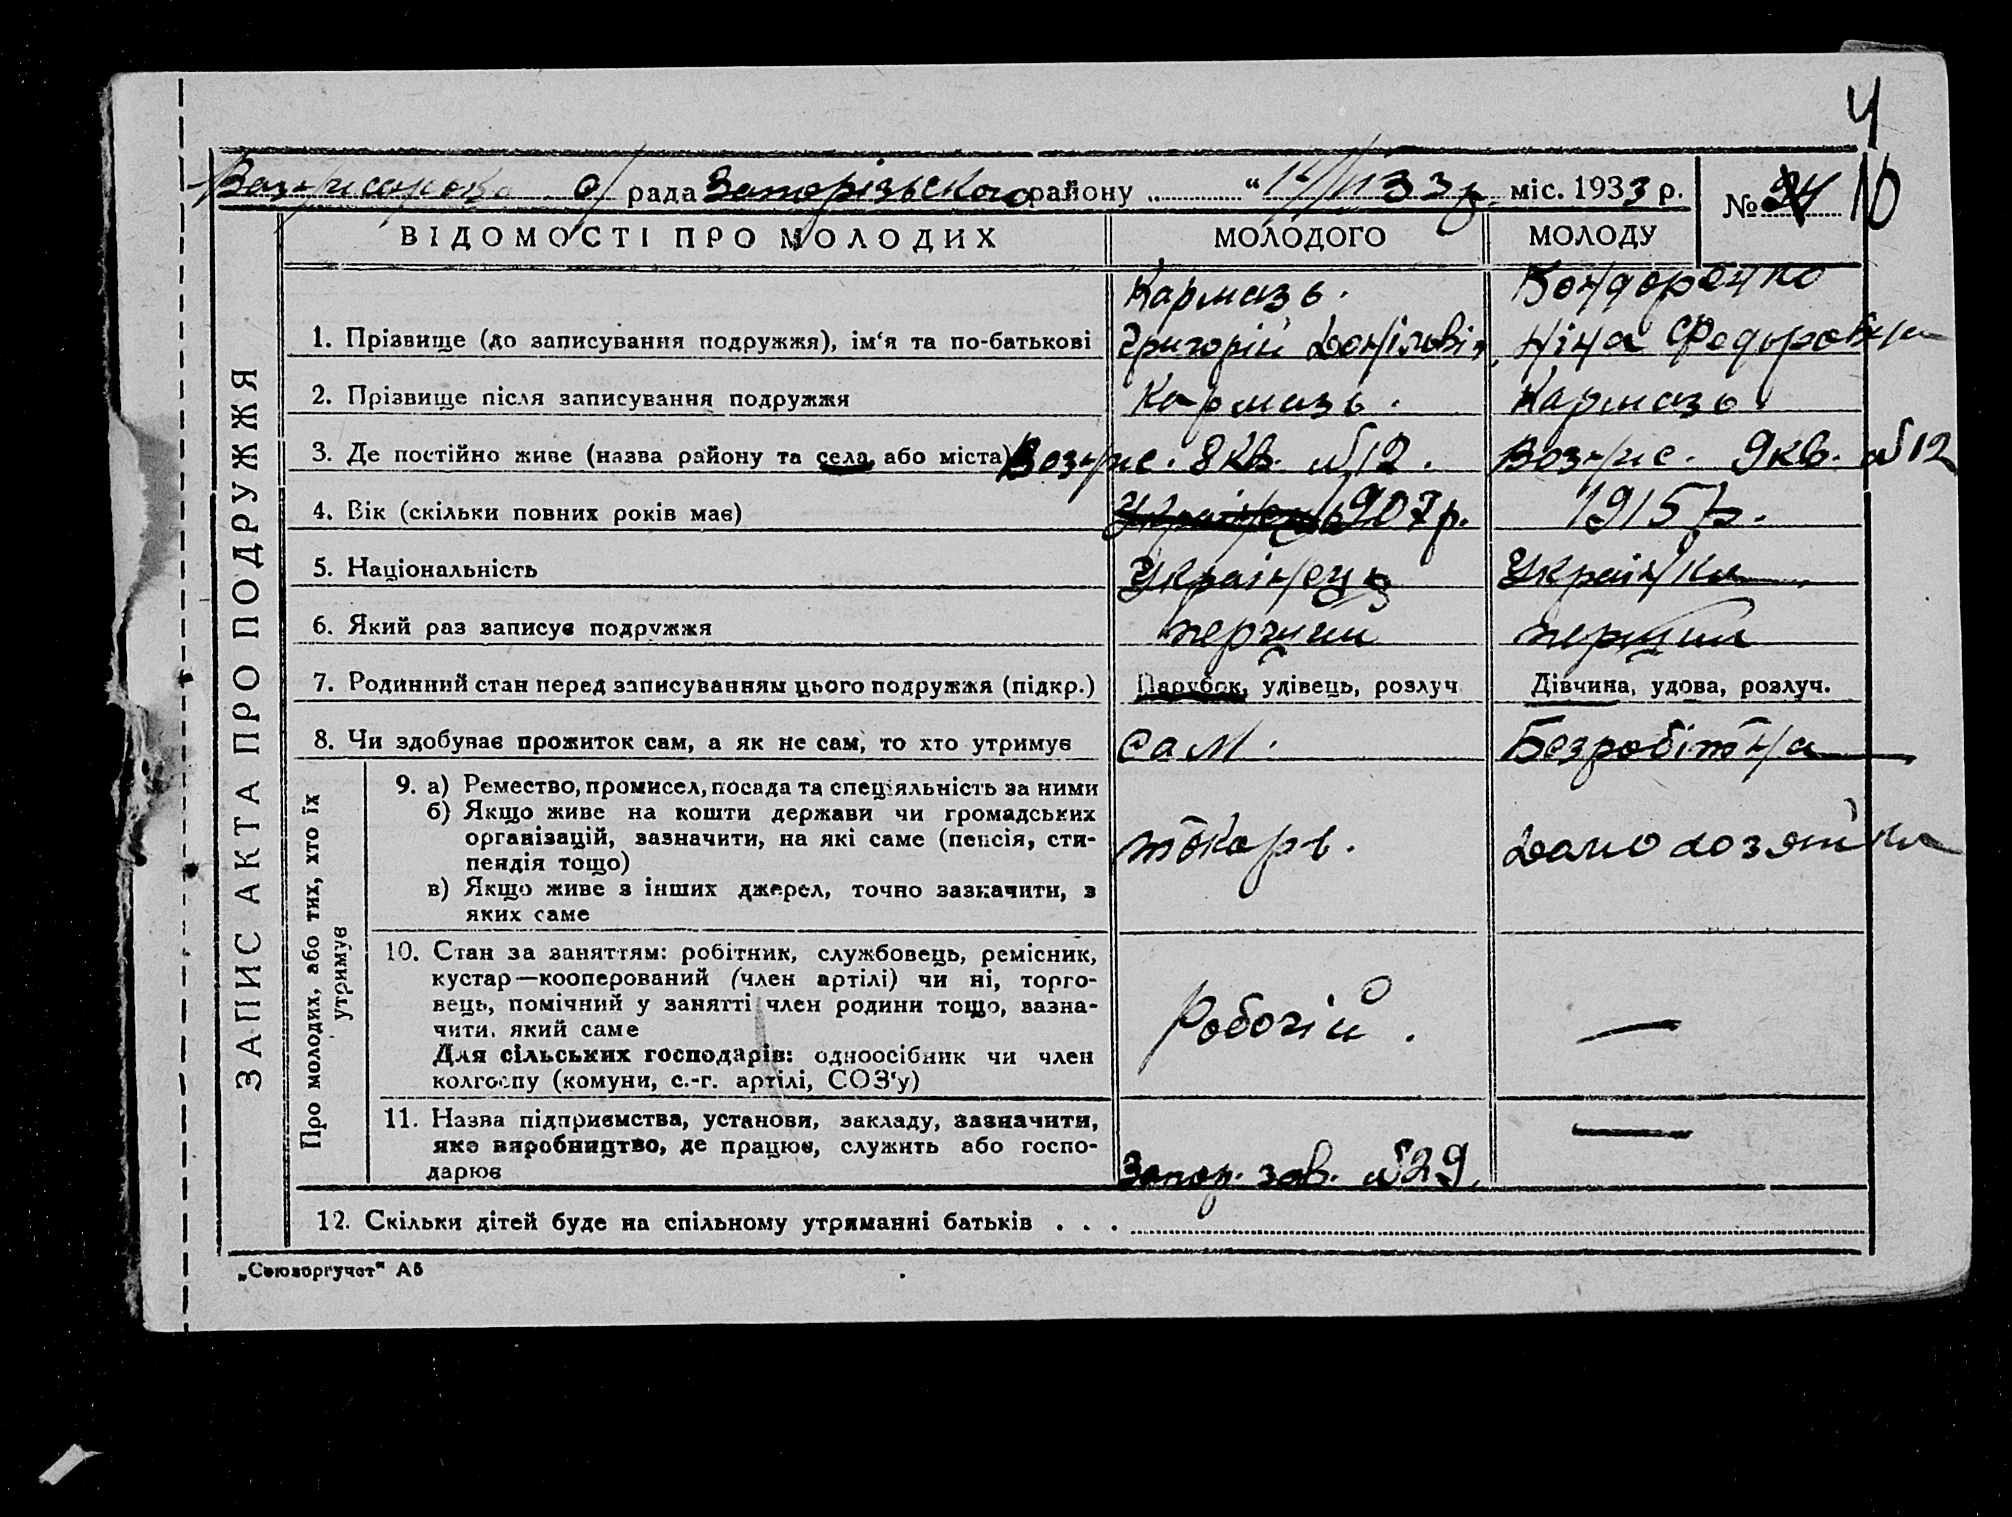 4
рада Запорізького району "1/II 33 р. міс. 1933 р. № 10
ВІДОМОСТІ ПРО МОЛОДИХ МОЛОДОГО МОЛОДУ
ЗАПИС АКТА ПРО ПОДРУЖЖЯ
Кармазь. Бондаренко
1. Прізвище (до записування подружжя), ім'я та по-батькові Григорій Ніна Федоровна
2. Прізвище після записування подружжя Кармазь. Кармазь.
3. Де постійно живе (назва району та села, або міста) Вознис. 8 кв. №12. Вознис. 9 кв. №12
4. Вік (скільки повних років має) 1907 р. 1915 р.
5. Національність Українець Українка
6. Який раз записує подружжя перший перший
7. Родинний стан перед записуванням цього подружжя (підкр.) Парубок, удівець, розлуч. Дівчина, удова, розлуч.
8. Чи здобуває прожиток сам, а як не сам, то хто утримує сам. Безробітна
Про молодих, або тих, хто їх утримує
9. а) Ремество, промисел, посада та спеціяльність за ними
б) Якщо живе на кошти держави чи громадських
організацій, зазначити, на які саме (пенсія, сти-
пендія тощо) токарь. Домохозяйка
в) Якщо живе з інших джерел, точно зазначити, з
яких саме
10. Стан за заняттям: робітник, службовець, ремісник,
кустар—кооперований (член артілі) чи ні, торго-
вець, помічний у занятті член родини тощо, зазна-
чити, який саме Робочій. —
Для сільських господарів: одноосібник чи член
колгоспу (комуни, с.-г. артілі, СОЗ'у)
11. Назва підприємства, установи, закладу, зазначити,
яке виробництво, де працює, служить або госпо- —
дарює Запор. зав. №29.
12. Скільки дітей буде на спільному утриманні батьків . . .
„Союзоргучет" А5